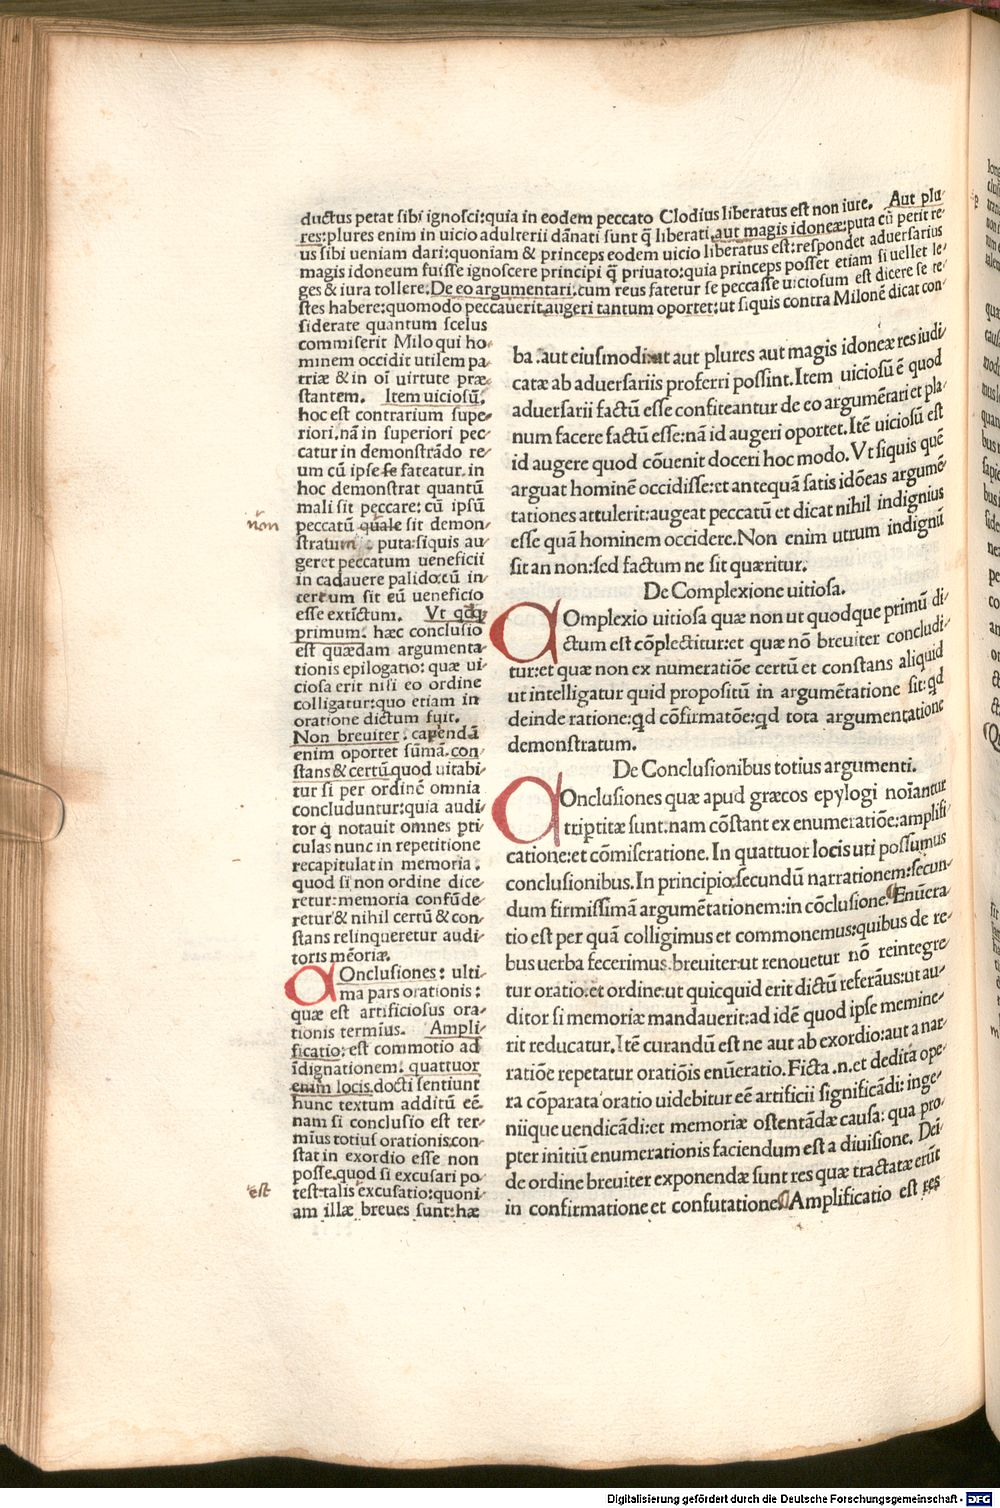 ductus petat sibi ignosci:quia in eodem peccato Clodius liberatus est non iure. Aut plu-
res:plures enim in uicio adulterii dānati sunt q̄ liberati.aut magis idoneæ:puta cū petit re-
us sibi ueniam dari:quoniam & princeps eodem uicio liberatus est:respondet aduersarius
magis idoneum fuisse ignoscere principi q̄ priuato:quia princeps posset etiam si uellet le-
ges & iura tollere.De eo argumentari:cum reus fatetur se peccasse uiciosum est dicere se te-
stes habere:quomodo peccauerit.augeri tantum oportet:ut siquis contra Milonē dicat con-
siderate quantum scelus
commiserit Milo qui ho-
minem occidit utilem pa-
triæ & in oī uirtute præ-
stantem. Item uiciosū.
hoc est contrarium supe-
riori.nā in superiori pec-
catur in demonstrādo re-
um cū ipse se fateatur.in
hoc demonstrat quantū
mali sit peccare: cū ipsū
non peccatū quale sit demon-
stratum : puta:siquis au-
geret peccatum ueneficii
in cadauere palido:cū in-
certum sit eū ueneficio
esse extīctum. Vt qdq
primum: hæc conclusio
est quædam argumenta-
tionis epilogatio: quæ ui-
ciosa erit nisi eo ordine
colligatur:quo etiam in
oratione dictum fuit.
Non breuiter: capendā
enim oportet sūmā.con-
stans & certū.quod uitabi-
tur si per ordinē omnia
concluduntur:quia audi-
tor q̄ notauit omnes pti-
culas nunc in repetitione
recapitulat in memoria.
quod si non ordine dice-
retur:memoria confūde-
retur & nihil certū & con-
stans relinqueretur audi-
toris mēoriæ.
COnclusiones: ulti-
ma pars orationis:
quæ est artificiosus ora-
tionis termīus. Ampli-
ficatio: est commotio ad
īdignationem: quattuor
enim locis.docti sentiunt
hunc textum additū eē.
nam si conclusio est ter-
mīus totiuſ orationis:con-
stat in exordio esse non
posse.quod si excusari po-
est test:talis excusatio:quoni-
am illæ breues sunt:hæ
ba.aut eiusmodi:ut aut plures aut magis idoneæ res iudi-
catæ ab aduersariis proferri possint.Item uiciosū ē quod
aduersarii factū esse confiteantur de eo argumētari et pla-
num facere factū esse:nā id augeri oportet.Itē uiciosū est
id augere quod cōuenit doceri hoc modo.Vt siquis quē
arguat hominē occidisse:et antequā satis idōeas argumē-
tationes attulerit:augeat peccatū et dicat nihil indignius
esse quā hominem occidere.Non enim utrum indignū
sit an non:sed factum ne sit quæritur.
De Complexione uitiosa.
COmplexio uitiosa quæ non ut quodque primū di-
ctum est cōplectitur:et quæ nō breuiter concludi-
tur:et quæ non ex numeratiōe certū et constans aliquid
ut intelligatur quid propositū in argumētatione sit:qd
deinde ratione:qd cōfirmatōe:qd tota argumentatione
demonstratum.
De Conclusionibus totius argumenti.
COnclusiones quæ apud græcos epylogi noīantur
triptitæ sunt.nam cōstant ex enumeratiōe:amplifi-
catione:et cōmiseratione.In quattuor locis uti possumus
conclusionibus.In principio:secundū narrationem:secun-
dum firmissimā argumētationem:in cōclusione.¶Enūera-
tio est per quā colligimus et commonemus:quibus de re-
bus uerba fecerimus.breuiter:ut renouetur nō reintegre-
tur oratio:et ordine:ut quicquid erit dictū referāus:ut au-
ditor si memoriæ mandauerit:ad idē quod ipse memine-
rit reducatur.Itē curandū est ne aut ab exordio:aut a nar-
ratiōe repetatur oratiōis enūeratio.Ficta.n.et dedita ope-
ra cōparata oratio uidebitur eē artificii significādi: inge-
niique uendicādi:et memoriæ ostentādæ causa: qua pro-
pter initiū enumerationis faciendum est a diuisione. Deī-
de ordine breuiter exponendæ sunt res quæ tractatæ erūt
in confirmatione et confutatione.¶Amplificatio est res
Digitalisierung gefördert durch die Deutsche Forschungsgemeinschaft - DFG